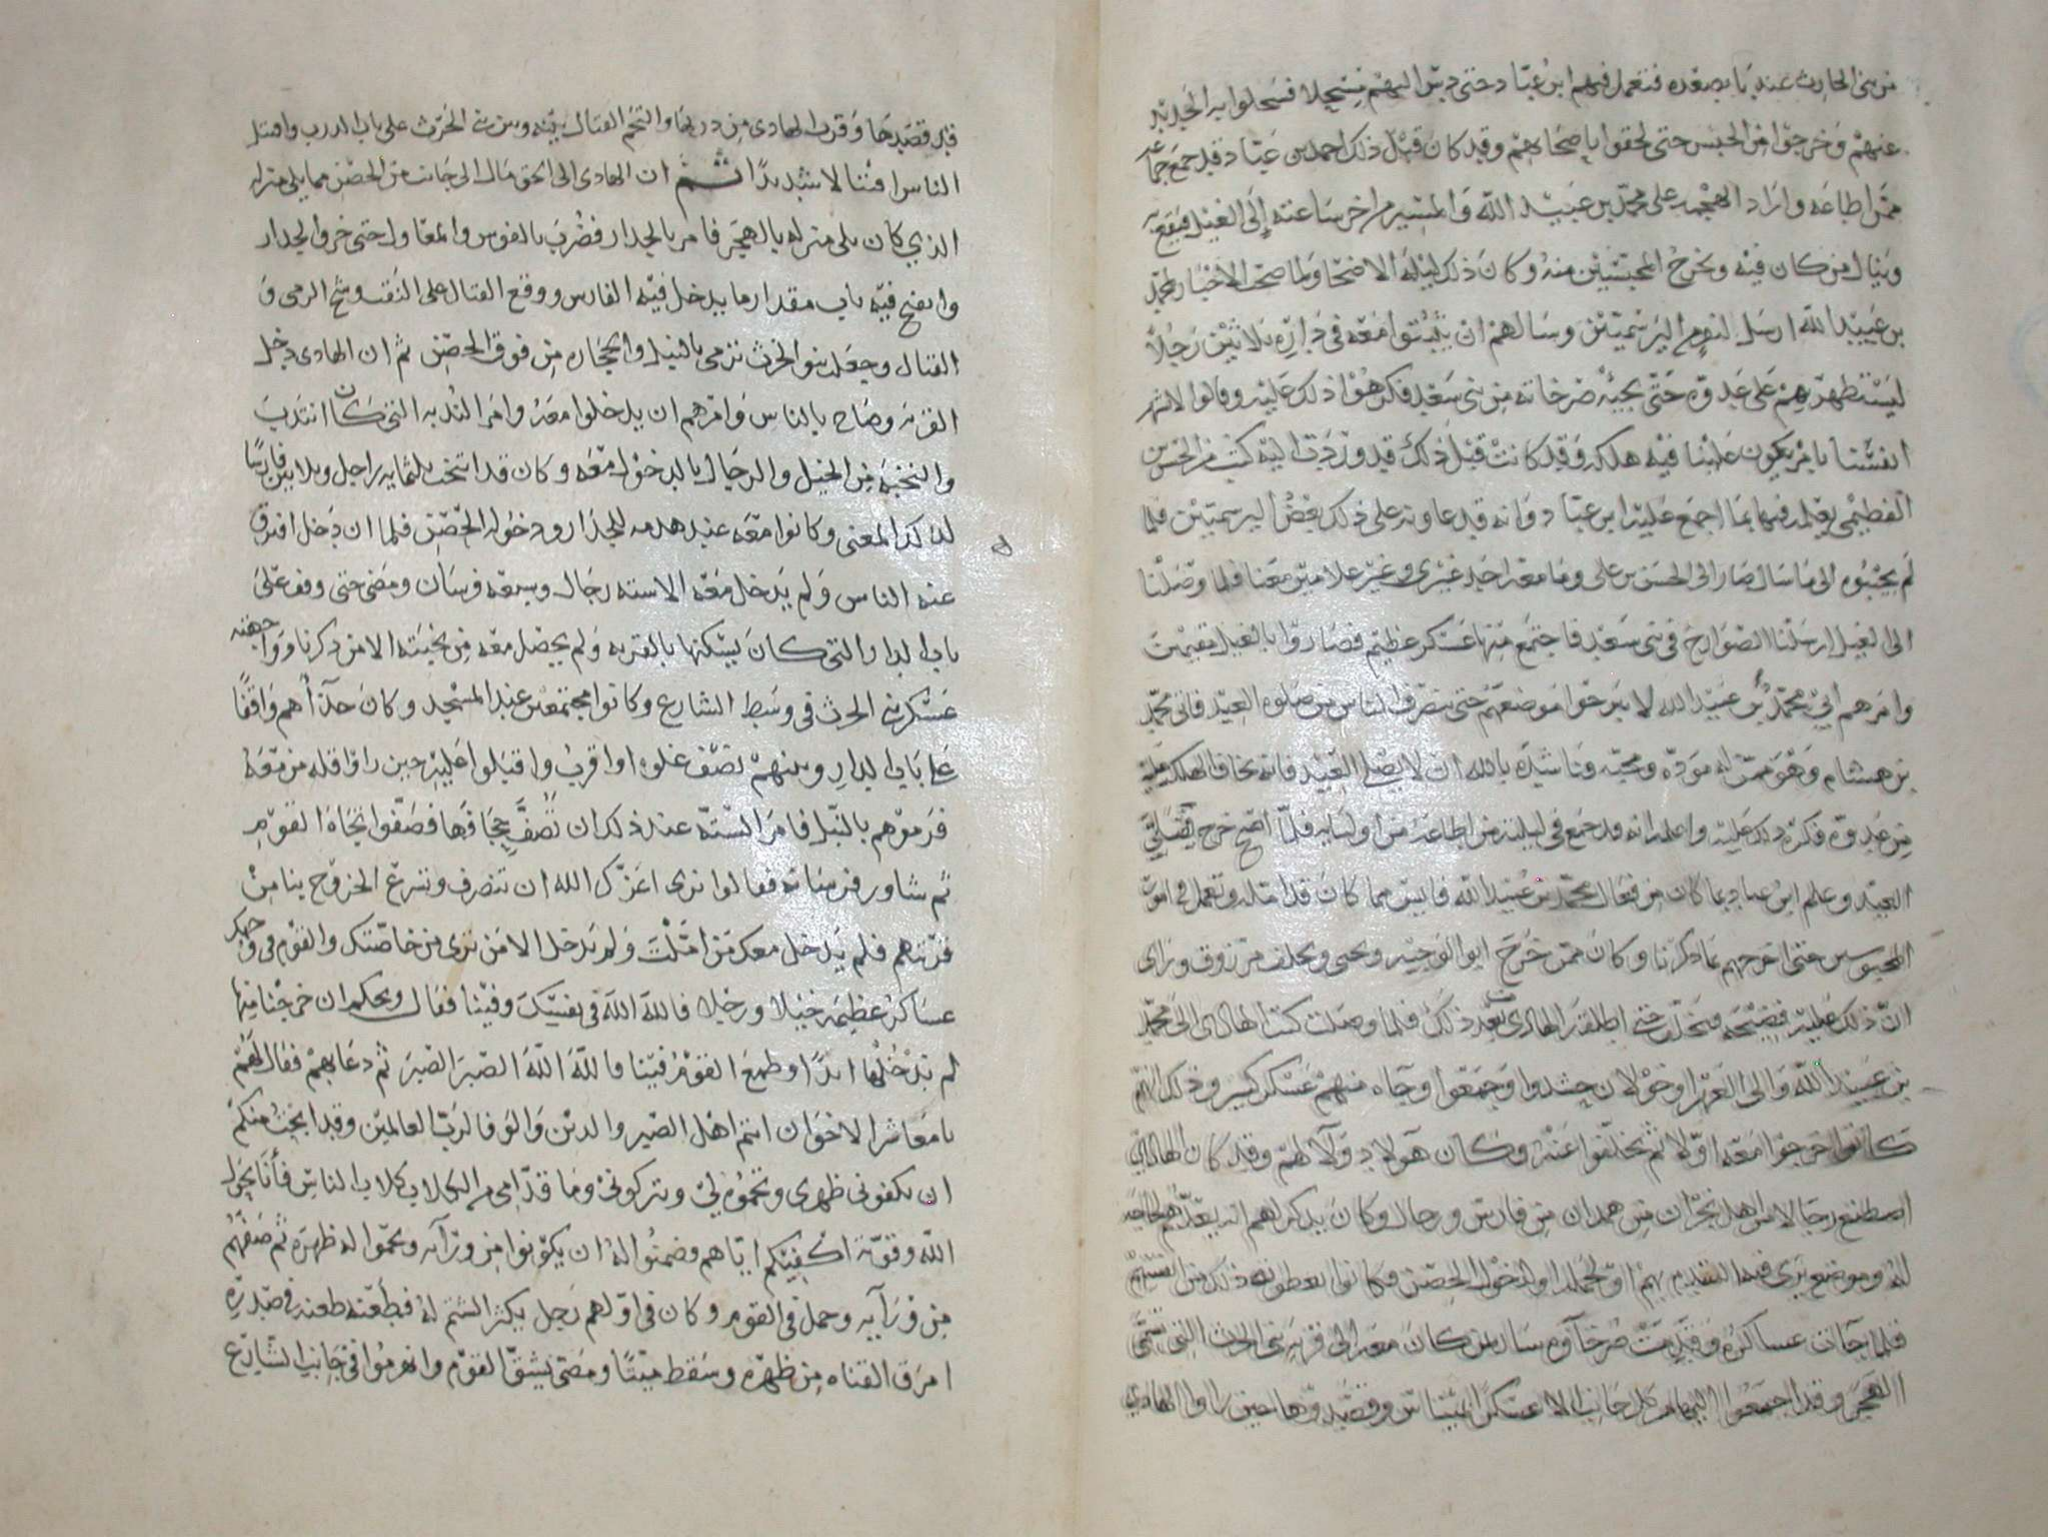 من بني الحارث عنده بما بصعده فتعمل فيهم ابن عباد حتى دس اليهم مسحلا فسحلوا به الحديد
عنهم وخرجوا من الحبس حتى لحقوا باصحابهم وقد كان قبل ذلك احمد بن عباد قد جمع جماعه
ممن اطاعه واراد الهجمه على محمد بن عبيد الله والمسير من اخر ساعته إلى الغيل فيقع به
وينال من كان فيه ويخرج المحبسين منه وكان ذلك ليله الاضحا ولما صحت الاخبار لمحمد
بن عبيد الله ارسل لقوم اليرسميين وسالهم ان يبيتوا معه في داره ثلاثين رجلا
ليستظهر بهم على عدوه حتى يجيه صرخاته من بني سعد فكرهوا ذلك عليه وقالوا لا نشهر
انفسنا بامر يكون علينا فيه هلكه وقد كانت قبل ذلك قد وردت اليه كتب من الحسن
الفطيمي يعلمه فيها بما اجمع عليه ابن عباد وانه قد عاونه على ذلك بعض اليرسميين فلما
لم يجيبوه الى ما سال صار الى الحسن بن علي وما معه احد غيري وغير غلامين معنا فلما وصلنا
الى الغيل ارسلنا الصوارخ في بني سعد فاجتمع منها عسكر عظيم فصاروا بالغيل مقيمين
وامرهم ابي محمد بن عبيد الله لا يبرحوا موضعهم حتى ينصرف الناس من صلوه العيد فاتى محمد
بن هشام وهو ممن له موده ومحبه فناشده بالله ان لا يصلي العيد فانه يخاف الهلكه عليه
من عدوه فكره ذلك عليه واعلمه انه قد جمع في ليلته من اطاعه من اوليايه فلما اصبح خرج فصلى
العيد وعلم ابن عباد بما كان من فعال محمد بن عبيد الله فايس مما كان قد امله وتعمل في امر
المحبوسين حتى اخرجهم بما ذكرنا وكان ممن خرج ابو الوجيه ويحيى وخلف مرزوق وراى
ان ذلك عليه فضيحه حتى اطلقه الهادى بعد ذلك فلما وصلت كتب الهادى الى محمد
بن عبيد الله والى العز اوخولان حشدوا وجمعوا وجاه منهم عسكر كبير وذلك انهم
كانوا خرجوا معه اولا ثم تخلفوا عنه وكان هولاء ولا لهم وقد كان الهادي
اصطنع رجالا من اهل نجران من همدان من فارس وراجل وكان يذكر لهم انه يعدهم لحاجه
له وموضع يرى فيه التقديم بهم اول حمله او لدخول الحصن وكانوا يعطونه ذلك من انفسهم
فلما جات عساكره وقدمت صرخاوه سار بمن كان معه الى قريه بني الحرث التي تسمى
الهجر وقد اجمعوا اليها من كل جانب الا عسكرا وقصدوها حين راوا الهادي
قد قصدها وقرب الهادي من دربها والتحم القتال بينه وبين بني الحرث على باب الدرب واقتتل
الناس اقتتالا شديدا ثم ان الهادي الى الحق مال الى جانب من الحصن مما يلي منزله
الذي كان يلي منزله بالهجر فامر بالجدار فضرب بالفوس والمعاول حتى خر والجدار
وانفتح فيه باب مقدار ما يدخل فيه الفارس ووقع القتال على النقب وشج الرمي و
القتال وجعل بنو الحرث ترمي بالنبل والحجاره من فوق الحصن ثم ان الهادى دخل
القريه وصاح بالناس وامرهم ان يدخلوا معه وامر الندبه التي كان انتدب
والنخبه من الخيل والرجال بالدخول معه وكان قد انتخب ثلثمايه راجل وثلاثين فارسا
لذلك المعنى وكانوا معه عند هدمه للجدار ودخوله الحصن فلما ان دخل افترق
عنه الناس ولم يدخل معه الا سته رجال وسبعه فرسان ومضى حتى وقف على
باب الدار التي كان يسكنها بالقريه ولم يحصل معه من نخبته الا من ذكرنا وواجهته
عسكر بني الحرث في وسط الشارع وكانوا مجتمعين عند المسجد وكان حذاهم واقفا
على باب الدار وبينهم نصف غلوه او اقرب واقبلوا عليه حين راوا قله من معه
فرموهم بالنبل فامر السته عند ذلك ان تصف حجافها فصفوا تجاه القوم
ثم شاور فرسانه فقالوا نرى اعزك الله ان تنصرف وتسرع الخروج بنا من
قريتهم فلم يدخل معك من املت ولم يدخل الا من ترى من خاصتك والقوم في وجهك
عساكر عظيمه خيلا ورجلا فالله الله في نفسك وفينا فقال ويحكم ان خرجنا منها
لم ندخلها ابدا وطمع القوم فينا فالله الله الصبر الصبر ثم دعا بهم فقال لهم
يا معاشر الاخوان انتم اهل الصبر والدين والوفا لرب العالمين وقد ابحت منكم
ان تكفوني ظهرى وتحموه لي وتتركوني وما قدامي من الكلاب كلاب الناس فأنا بحول
الله وقوته اكفيكم اياهم فضمنوا له ان يكونوا من ورآيه ويحموا له ظهره ثم صفهم
من ورآيه وحمل في القوم وكان في اولهم رجل يكثر الشتم له فطعنه طعنه في صدره
امرق القناه من ظهره وسقط ميتا ومضى يشق القوم وانهرموا في جانب الشارع